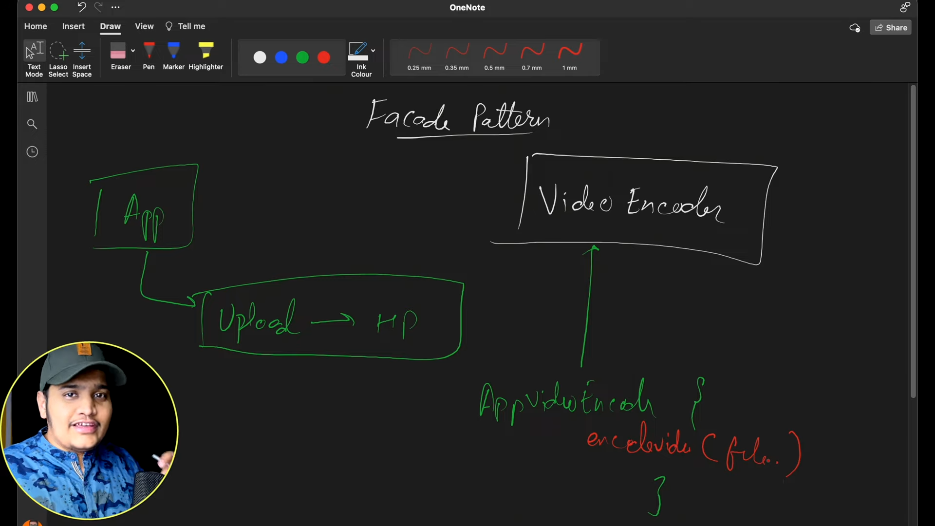 OneNote
Home Insert Draw View Tell me
Share
Text Mode
Lasso Select
Insert Space
Eraser
Pen
Marker
Highlighter
Ink Colour
0.25 mm 0.35 mm 0.5 mm 0.7 mm 1 mm
Facade Pattern
App
Video Encoder
Upload → HD
AppVideoEncodr {
encodevideo (file..)
}